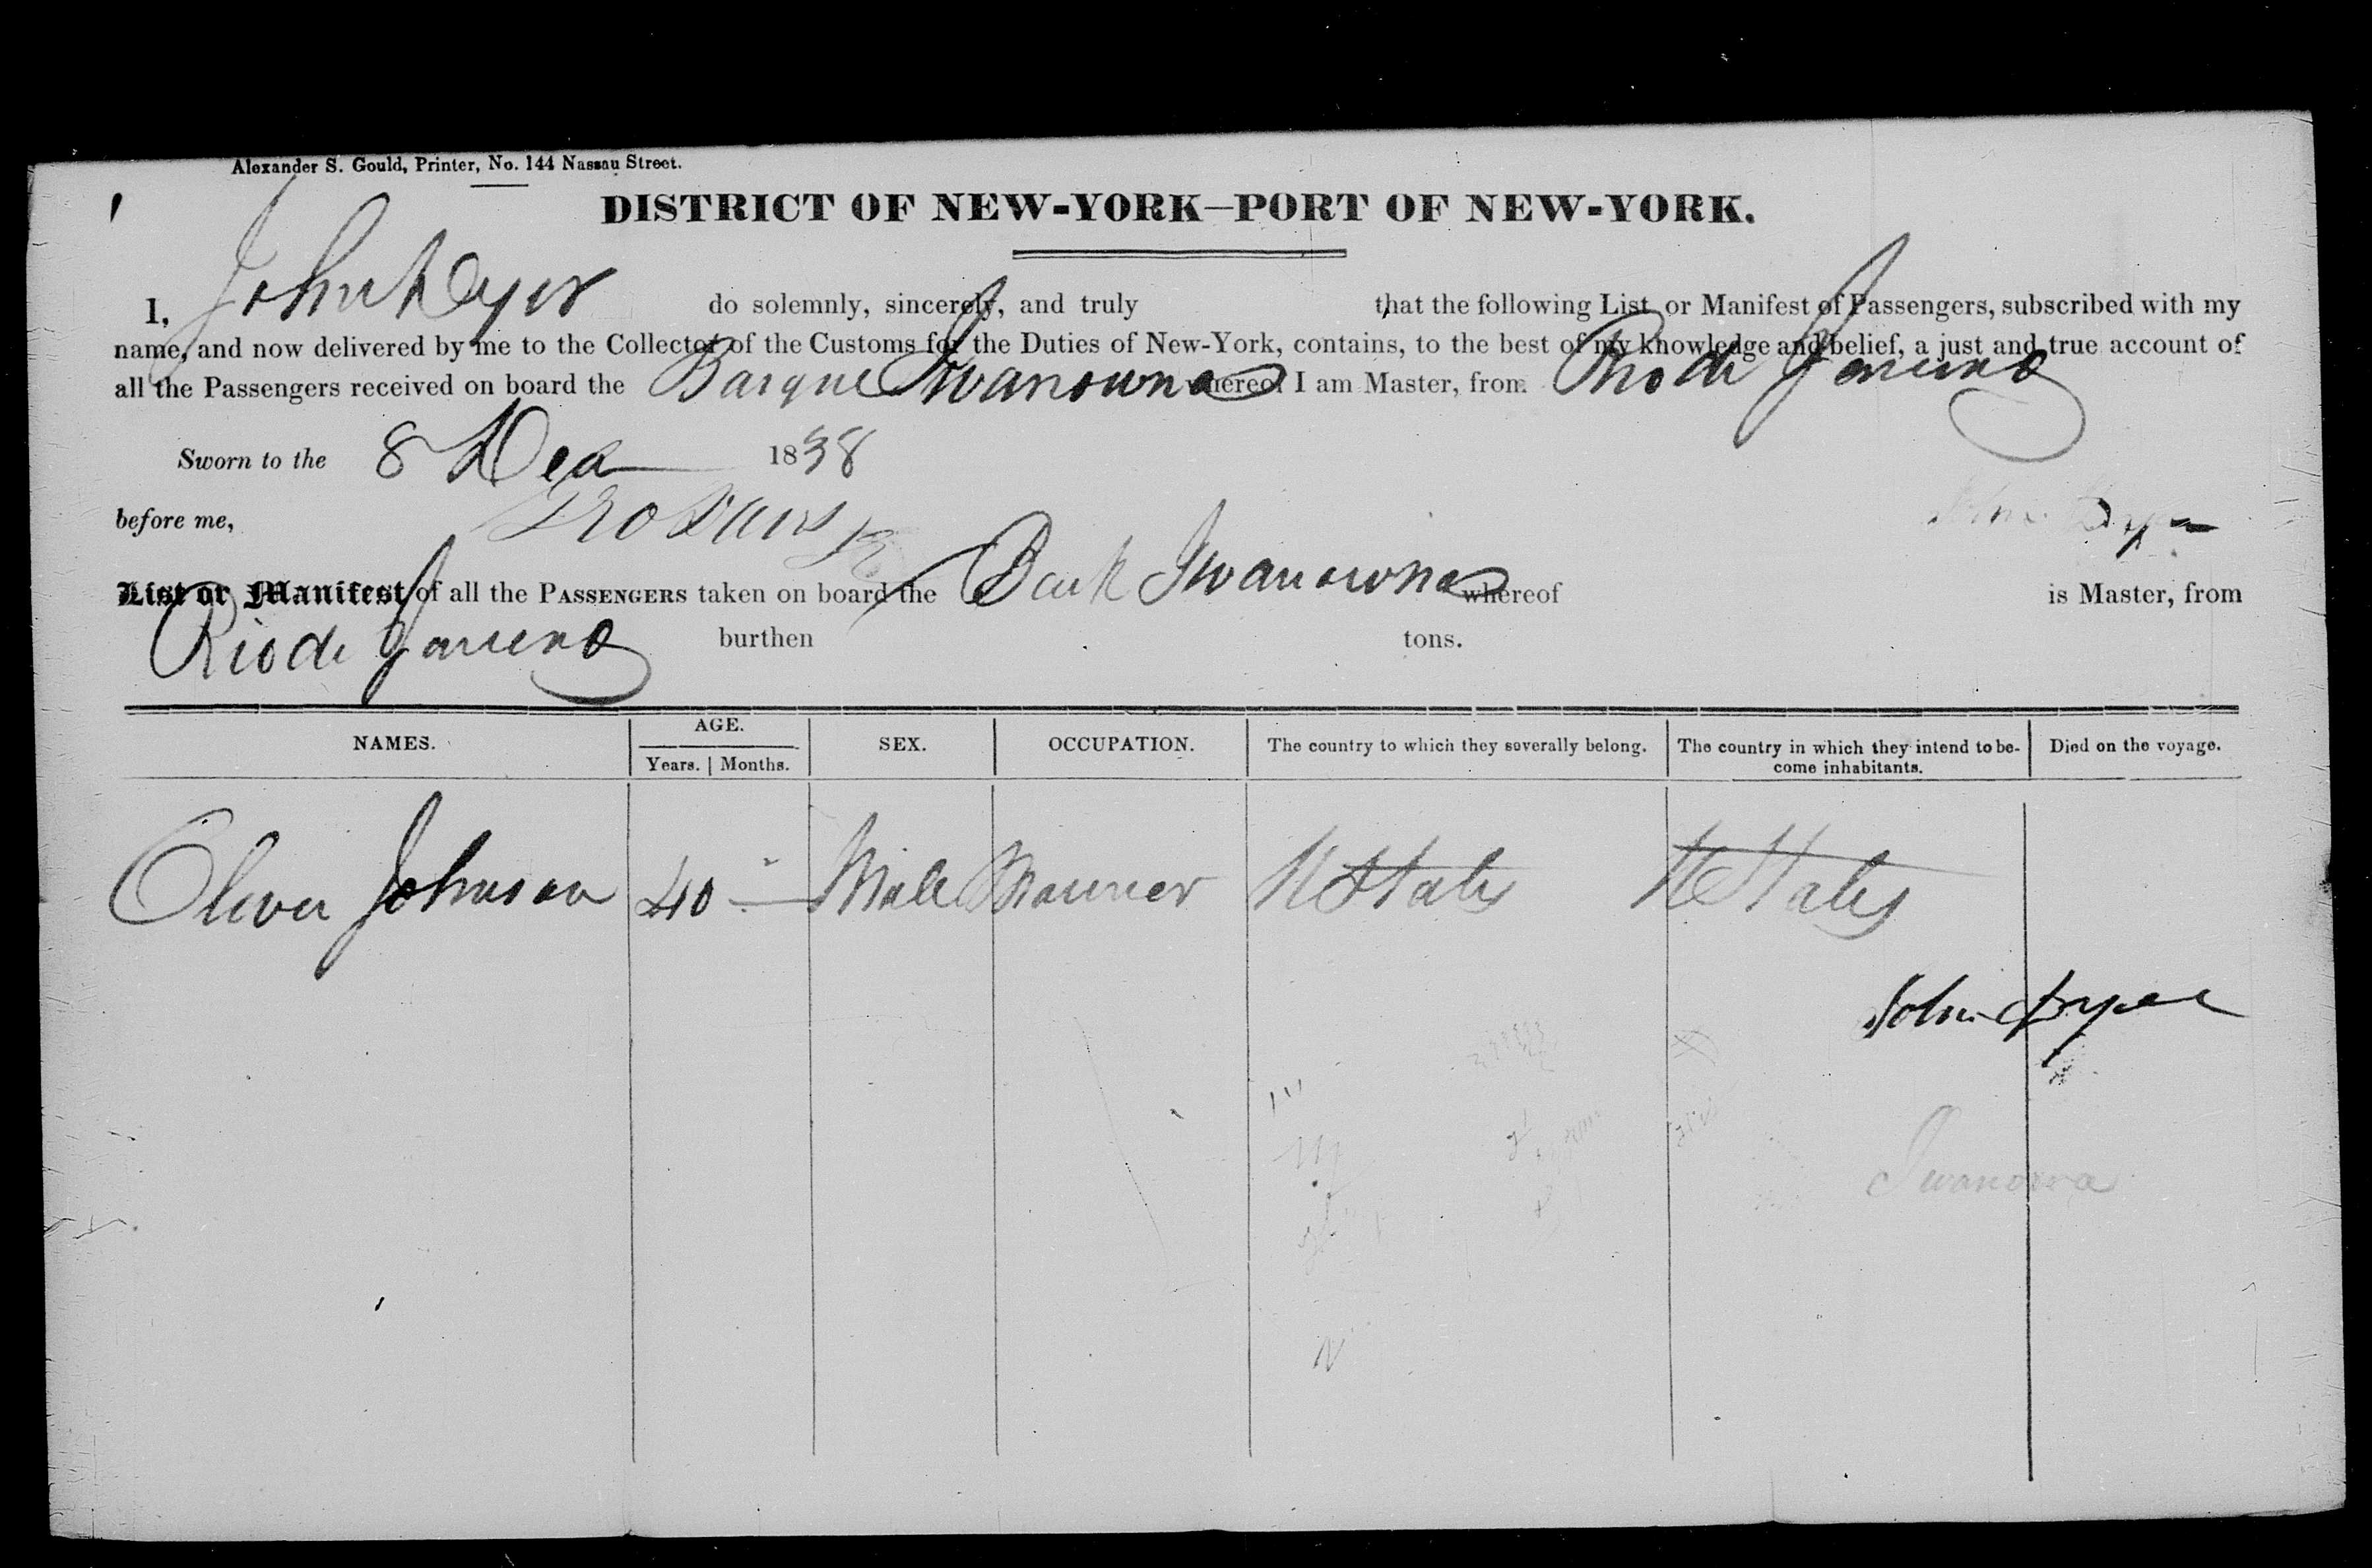 Alexander S. Gould, Printer, No. 144 Nassau Street.
DISTRICT OF NEW-YORK—PORT OF NEW-YORK.
I, John Dyer do solemnly, sincerely, and truly that the following List or Manifest of Passengers, subscribed with my
name, and now delivered by me to the Collector of the Customs for the Duties of New-York, contains, to the best of my knowledge and belief, a just and true account of
all the Passengers received on board the Barque Iwanowna whereof I am Master, from Rio de Janeiro
Sworn to the 8 Dec 1838
before me, John Dyer
List or Manifest of all the PASSENGERS taken on board the Bark Iwanowna whereof is Master, from
Rio de Janeiro burthen tons.
NAMES. AGE. SEX. OCCUPATION. The country to which they severally belong. The country in which they intend to be- Died on the voyage.
Years. Months. come inhabitants.
Oliver Johnson 40 Male Mariner U States U States
John Dyer
Iwanowna